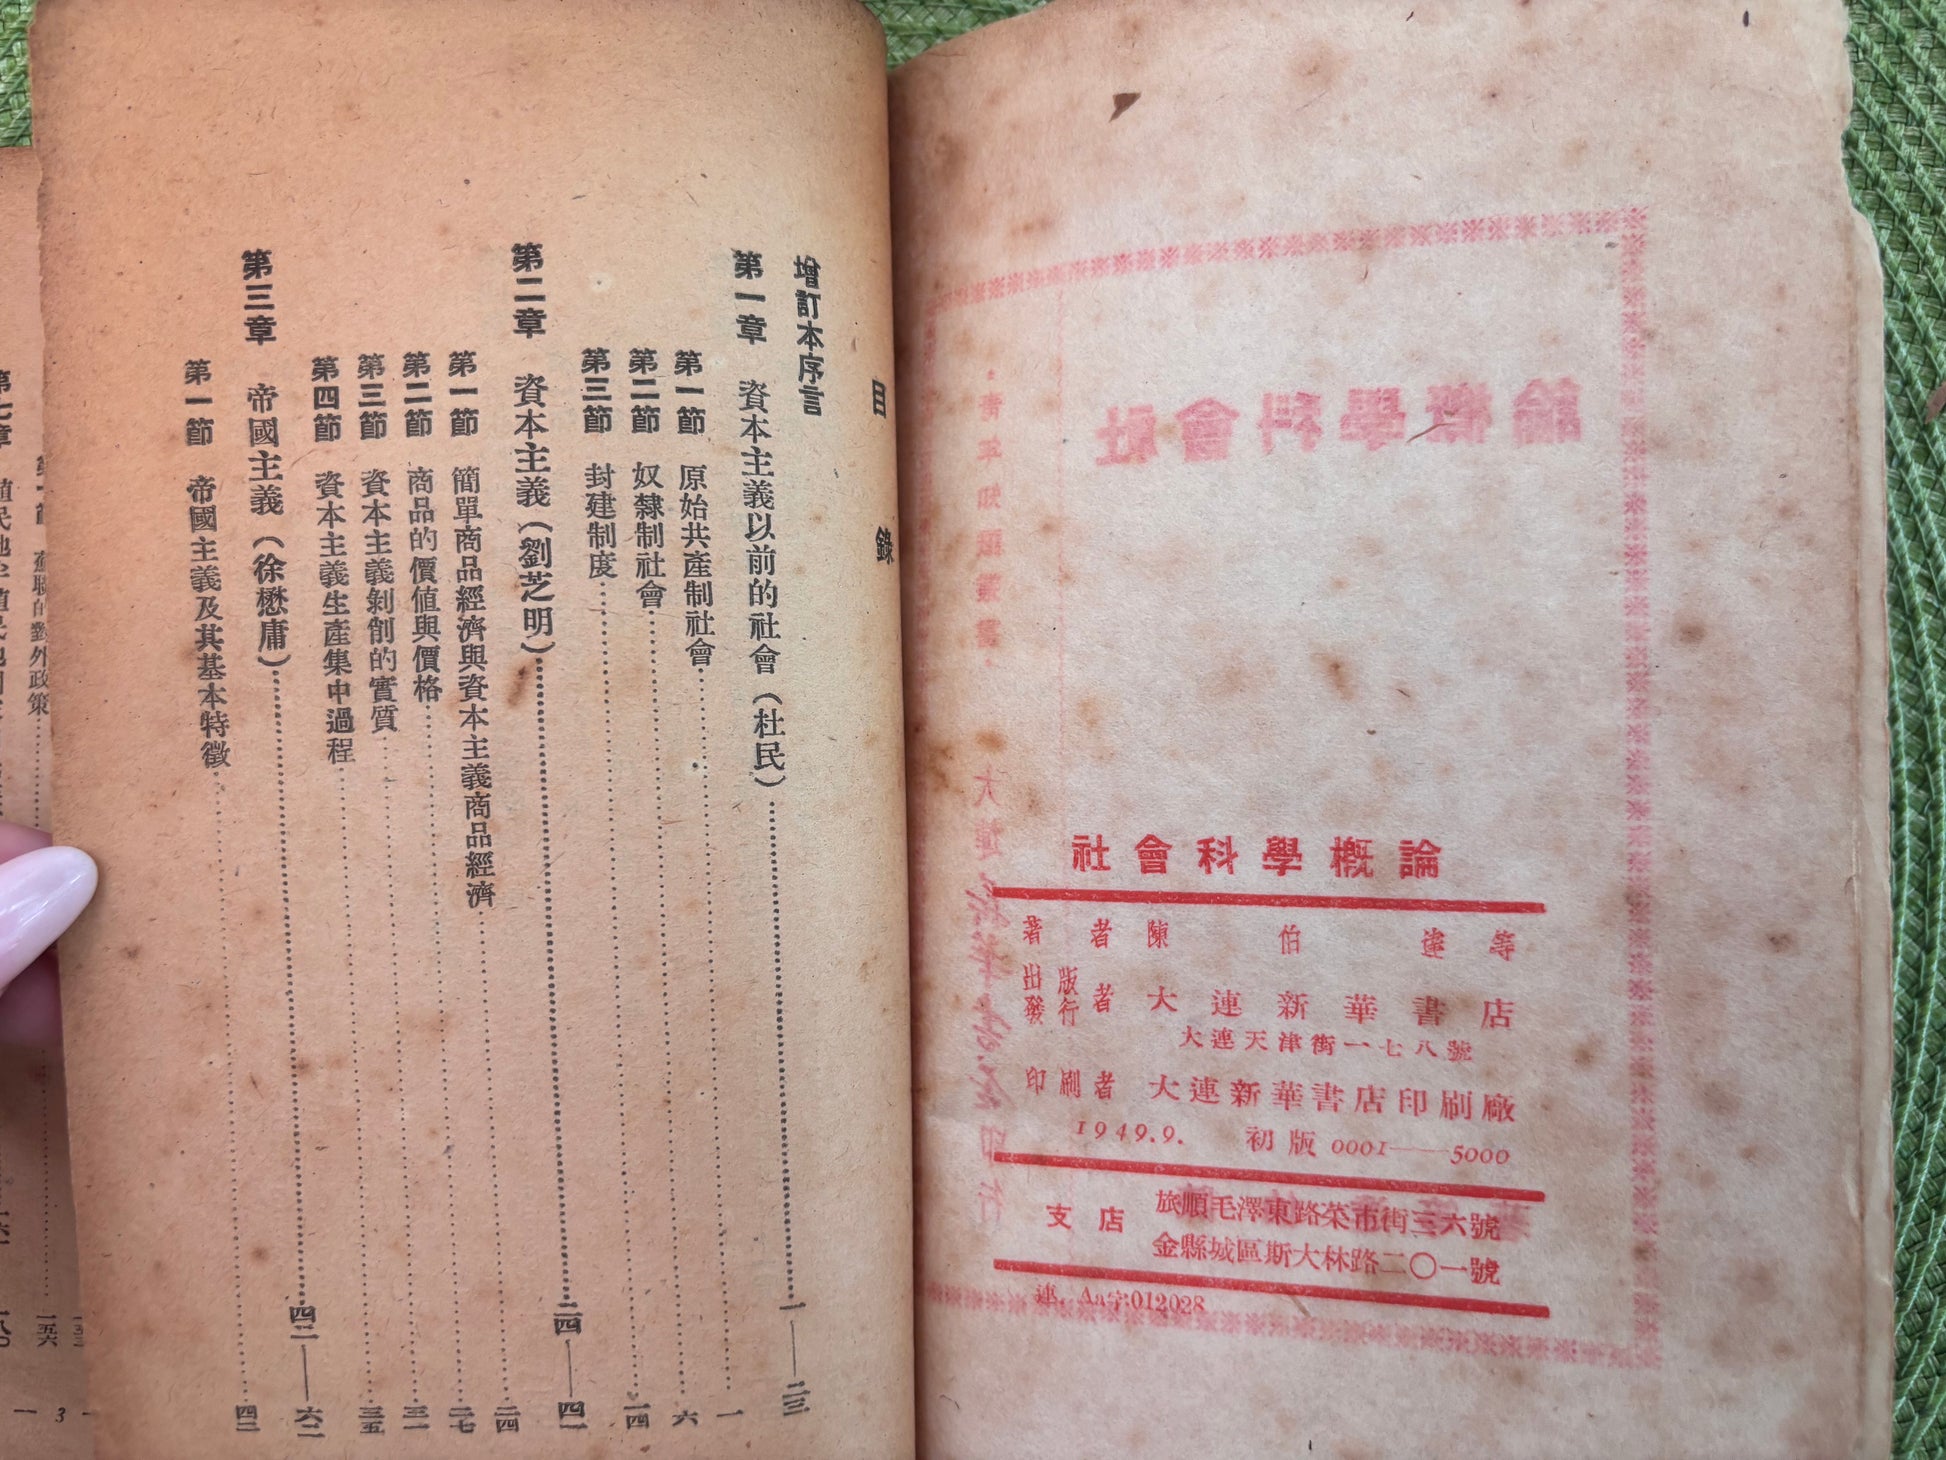 社會科學概論
著者 陳伯達等
出版發行者 大連新華書店
大連天津街一七八號
印刷者 大連新華書店印刷廠
1949.9. 初版 0001——5000
支店 旅順毛澤東路菜市街三六號
金縣城區斯大林路二〇一號
連. Aa字:012028
社會科學概論
目錄
增訂本序言
第一章 資本主義以前的社會（杜民）……一——二三
第一節 原始共產制社會……一
第二節 奴隸制社會……六
第三節 封建制度……一四
第二章 資本主義（劉芝明）……二四——四一
第一節 簡單商品經濟與資本主義商品經濟……二四
第二節 商品的價值與價格……二七
第三節 資本主義剝削的實質……三一
第四節 資本主義生產集中過程……三五
第三章 帝國主義（徐懋庸）……四二——六二
第一節 帝國主義及其基本特徵……四二
蘇聯的對外政策……一五六
第七章
3